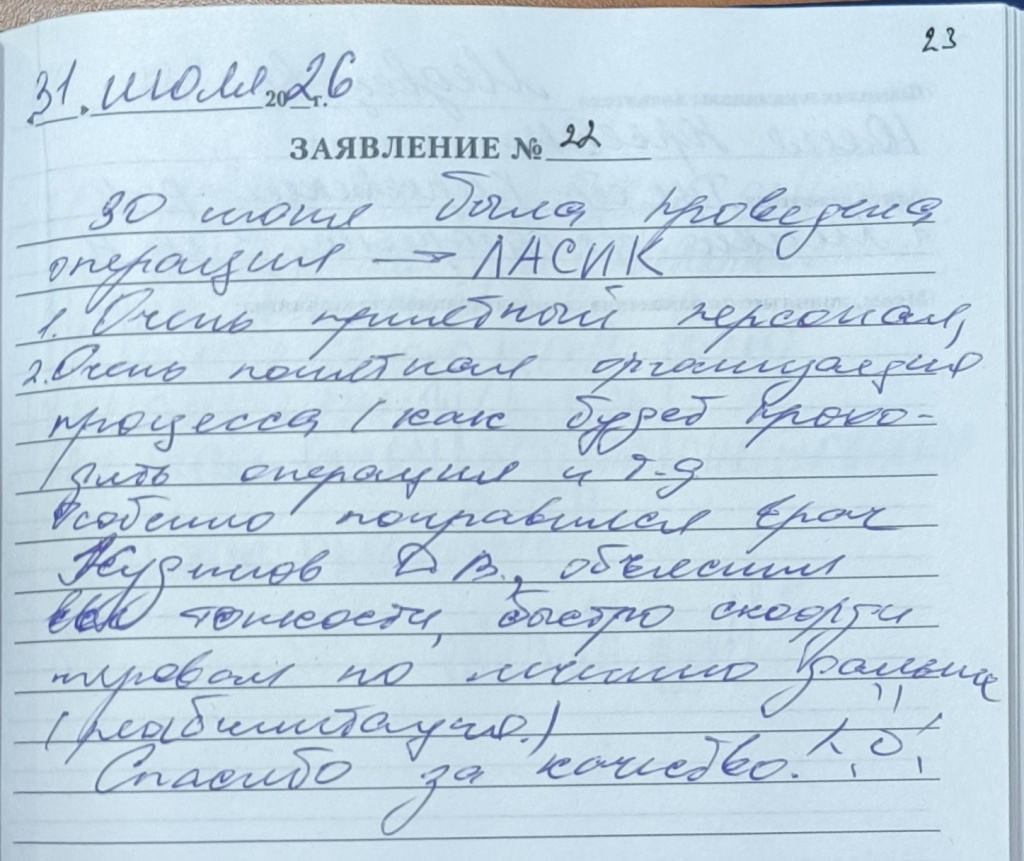 23
31. июля 2026 г.
ЗАЯВЛЕНИЕ № 22
30 июля была проведена
операция → ЛАСИК
1. Очень приятный персонал,
2. Очень понятная организация
процесса (как будет прохо-
дить операция и т.д
Особенно понравился врач
Д.В., объяснил
все тонкости, быстро скоорди
нировал по лечению дальше
(реабилитацию.)
Спасибо за качество.